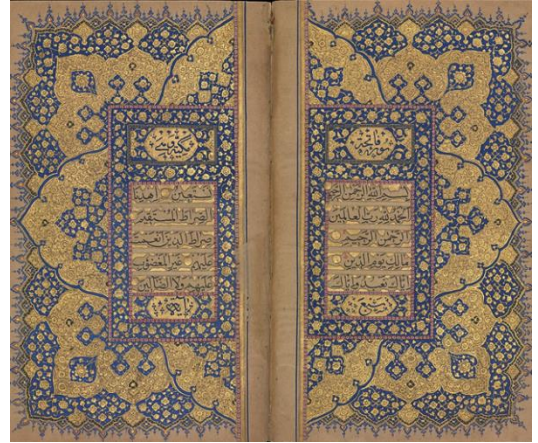 سورة فاتحة
بسم الله الرحمن الرحيم
الحمد لله رب العالمين
الرحمن الرحيم
مالك يوم الدين
إياك نعبد وإياك
سبع
نستعين اهدنا
الصراط المستقيم
صراط الذين أنعمت
عليهم غير المغضوب
عليهم ولا الضالين